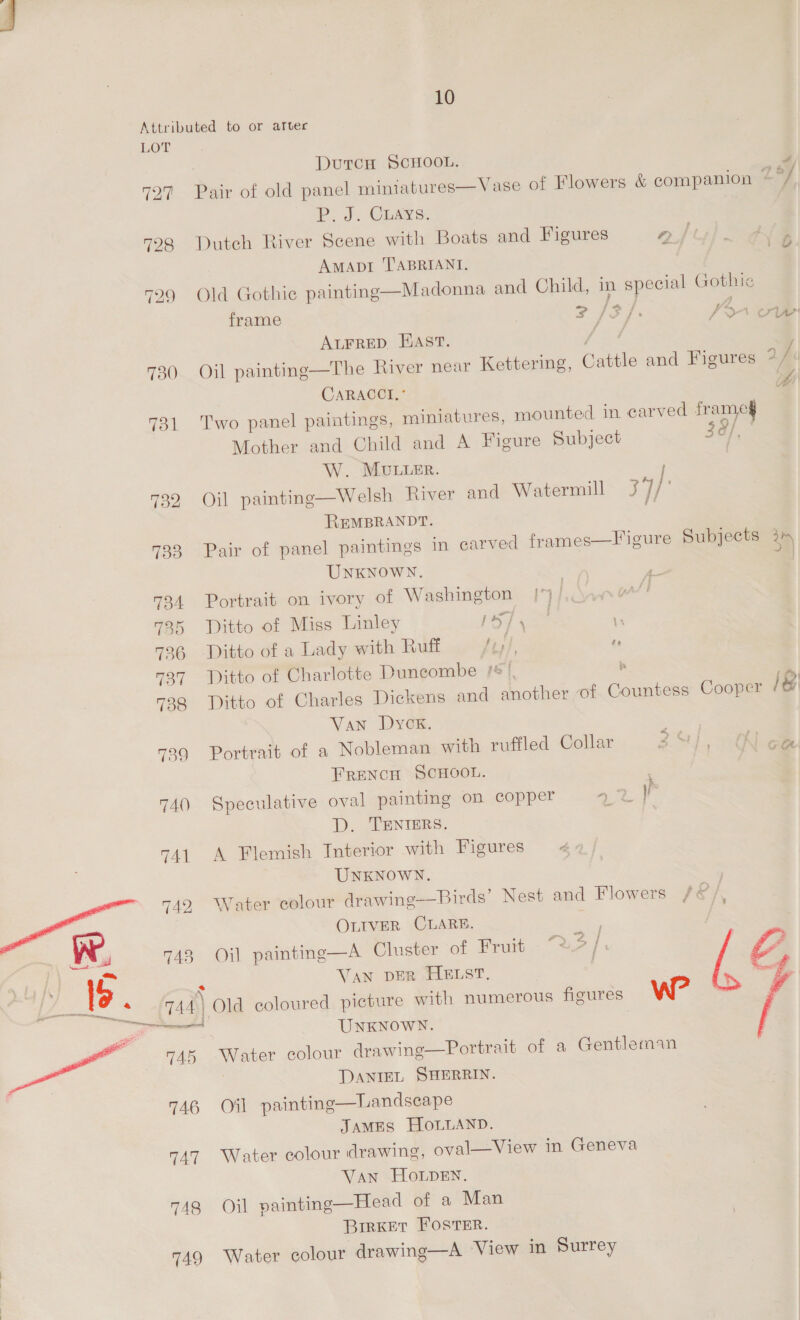 10
Attributed to or after
LOT
DUTCH SCHOOL.
727 Pair of old panel miniatures—Vase of Flowers & companion
P. J. CLAYS.
728 Dutch River Scene with Boats and Figures
AMADI TABRIANI.
729 Old Gothic painting—Madonna and Child, in special Gothic
frame
ALFRED EAST.
730 Oil painting—The River near Kettering, Cattle and Figures
CARACCI.
731 Two panel paintings, miniatures, mounted in carved frames
Mother and Child and A Figure Subject 38/.
W. MULLER.
732 Oil painting—Welsh River and Watermill 37/
REMBRANDT.
733 Pair of panel paintings in carved frames—Figure Subjects
UNKNOWN.
734 Portrait on ivory of Washington
735 Ditto of Miss Linley 15/
736 Ditto of a Lady with Ruff
737 Ditto of Charlotte Duncombe
738 Ditto of Charles Dickens and another of Countess Cooper
VAN DYCK.
739 Portrait of a Nobleman with ruffled Collar
FRENCH SCHOOL.
740 Speculative oval painting on copper
D. TENIERS.
741 A Flemish Interior with Figures
UNKNOWN.
742 Water colour drawing—Birds' Nest and Flowers
OLIVER CLARE.
743 Oil painting—A Cluster of Fruit
VAN DER HELST.
744 Old coloured picture with numerous figures
UNKNOWN.
745 Water colour drawing—Portrait of a Gentleman
DANIEL SHERRIN.
746 Oil painting—Landscape
JAMES HOLLAND.
747 Water colour drawing, oval—View in Geneva
VAN HOLDEN.
748 Oil painting—Head of a Man
BIRKET FOSTER.
749 Water colour drawing—A View in Surrey